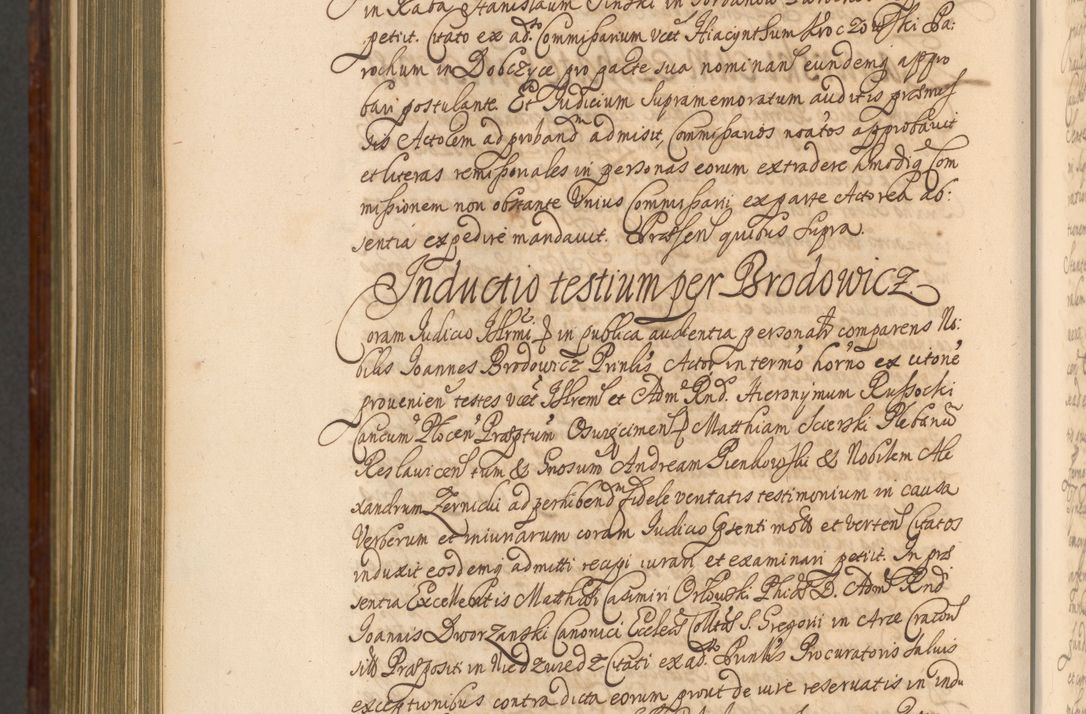 in Raba Stanislaum Sinski in Jordanow
petiit. Citato ex adso Commissarium vcet Hiacynthum Kroczowski Pa:
rochum in Dobczyce pro parte sua nominan eundemq appro
bari postulante. Et Judicium supramemoratum auditis præmis
sis Actorem ad proband admisit, Commissarios noatos approbavit
et literas remissoriales in personas eorum extradere hmodiq Com
missionem non obstante Unius Commissarij ex parte Actorea ab:
sentia expedire mandavit. Præsen quibus supra.
Inductio testium per Brodowicz.
Coram Judicio Illrmi in publica audientia personalr comparens No:
bilis Joannes Brodowicz Prinlis Actor in termo horno ex citone
provenien testes vcet Illrem et Adm Rnd. Hieronymum Russocki
Cancum Plocen Præptum Matthiam Scierski Plebanu
Reslavicen tum & Gnosum Andream Pienkowski & Nobilem Ale
xandrum Zernicki ad perhibend fidele veritatis testimonium in causa
Verberum et iniuriarum coram Judicio psenti mota et verten Citatos
induxit eosdemq admitti recipi iurari et examinari petiit. In præ
sentia Excellentis Matthiæ Casimiri Orlowski Phiæ D. Adm Rnd
Joannis Dworzanski Canonici Eccleæ Colltæ S. Gregorii in Arce Cracovien
sis Præpositi in Niedzwiedz Citati ex adso Prinlis Procuratoris salvis
exceptionibus contra dicta eorum prout de iure reservatis in indu